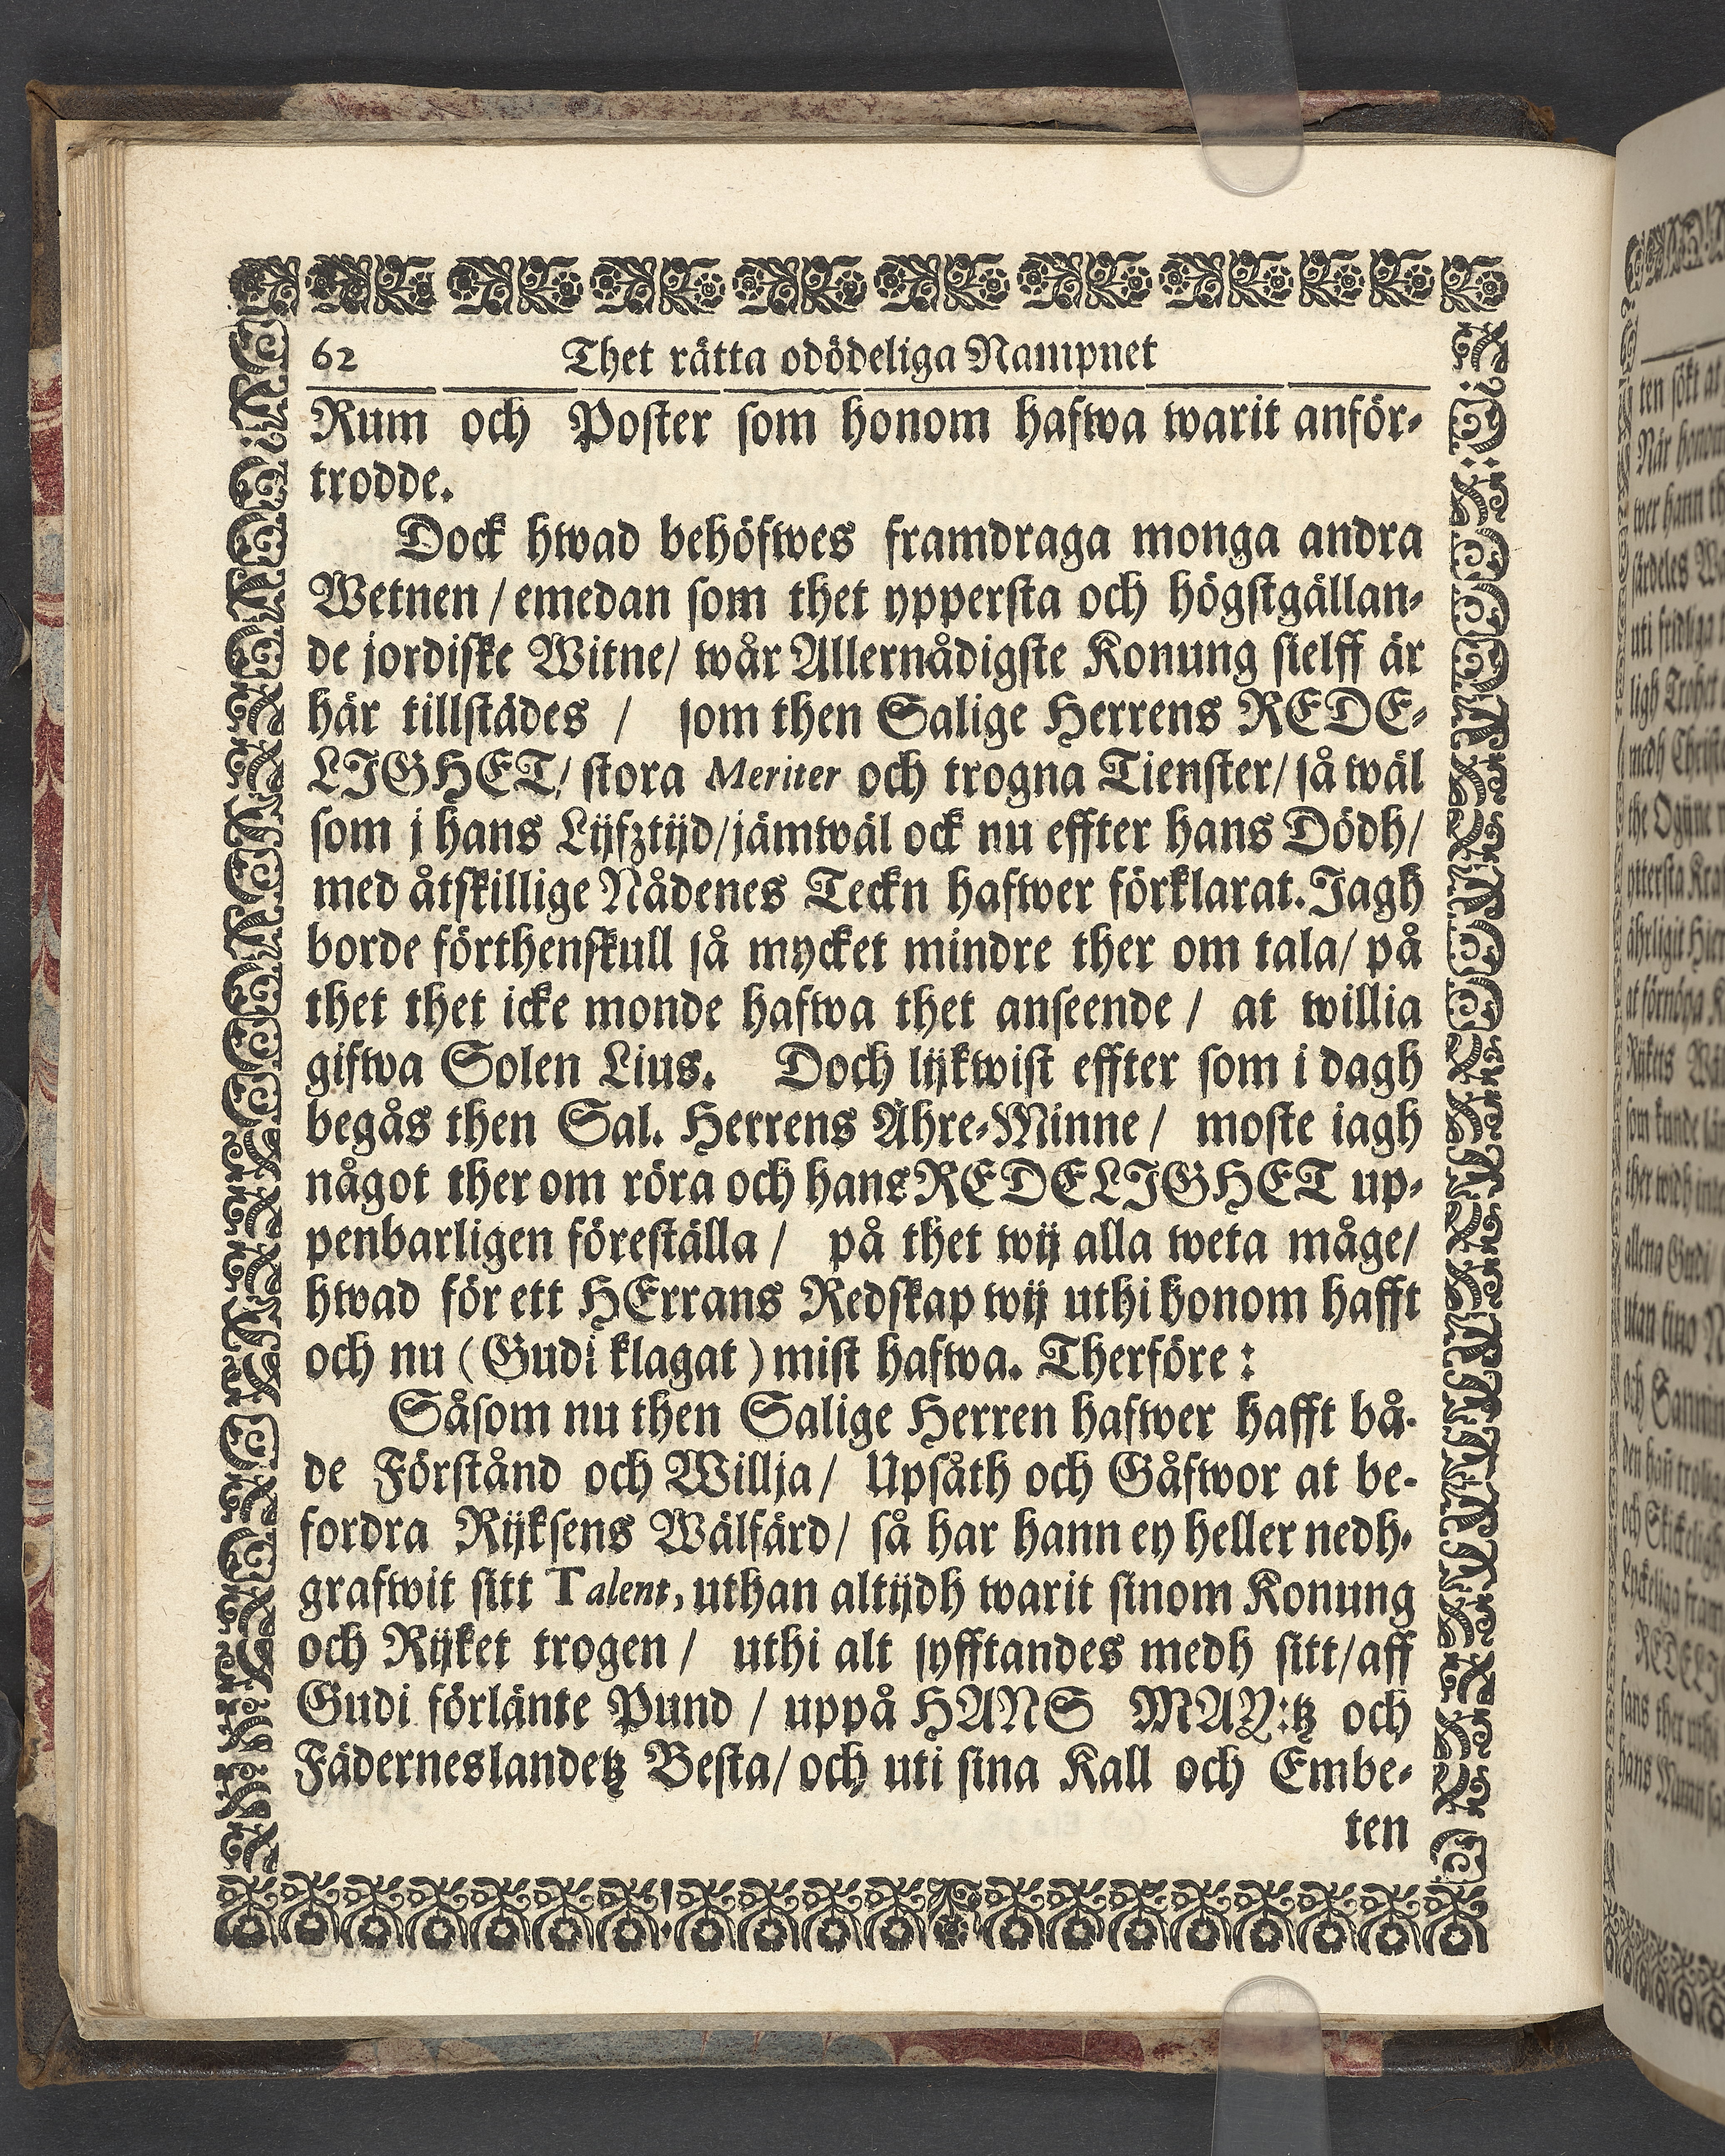 62 Thet rätta odödeliga Nampnet
Rum och Poster som honom hafwa warit anför-
trodde.
Dock hwad behöfwes framdraga monga andra
Wetnen / emedan som thet yppersta och högstgällan-
de jordiske Witne/ wår Allernådigste Konung sielff är
här tillstädes / som then Salige Herrens REDE-
LIGHET/ stora Meriter och trogna Tienster/ så wäl
som j hans Lijfztijd/jämwäl ock nu effter hans Dödh/
med åtskillige Nådenes Teckn hafwer förklarat. Jagh
borde förthenskull så mycket mindre ther om tala/ på
thet thet icke monde hafwa thet anseende / at willia
gifwa Solen Lius. Doch lijkwist effter som i dagh
begås then Sal. Herrens Ähre-Minne / moste iagh
något ther om röra och hans REDELIGHET up-
penbarligen föreställa / på thet wij alla weta måge/
hwad för ett HErrans Redskap wij uthi honom hafft
och nu (Gudi klagat) mist hafwa. Therföre :
Såsom nu then Salige Herren hafwer hafft bå-
de Förstånd och Willja/ Upsåth och Gåfwor at be-
fordra Rijksens Wälfärd/ så har hann ey heller nedh-
grafwit sitt Talent, uthan altijdh warit sinom Konung
och Rijket trogen / uthi alt syfftandes medh sitt/aff
Gudi förlänte Pund / uppå HANS MAY:tz och
Fäderneslandetz Besta/ och uti sina Kall och Embe-
ten